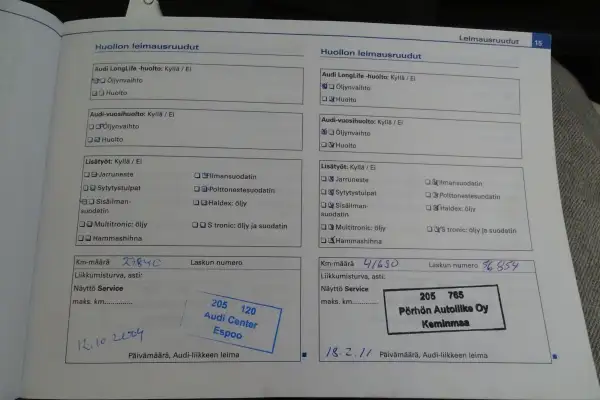 Leimausruudut 15
Huollon leimausruudut
Audi LongLife -huolto: Kyllä / Ei
Öljynvaihto
Huolto
Audi-vuosihuolto: Kyllä / Ei
Öljynvaihto
Huolto
Lisätyöt: Kyllä / Ei
Jarruneste
Ilmansuodatin
Sytytystulpat
Polttonestesuodatin
Sisäilman-
suodatin
Haldex: öljy
Multitronic: öljy
S tronic: öljy ja suodatin
Hammashihna
Km-määrä
Laskun numero
Liikkumisturva, asti:
Näyttö Service
maks. km.............
205 120
Audi Center
Espoo
12.10.2009
Päivämäärä, Audi-liikkeen leima
Huollon leimausruudut
Audi LongLife -huolto: Kyllä / Ei
Öljynvaihto
Huolto
Audi-vuosihuolto: Kyllä / Ei
Öljynvaihto
Huolto
Lisätyöt: Kyllä / Ei
Jarruneste
Ilmansuodatin
Sytytystulpat
Polttonestesuodatin
Sisäilman-
suodatin
Haldex: öljy
Multitronic: öljy
S tronic: öljy ja suodatin
Hammashihna
Km-määrä 41650 Laskun numero
Liikkumisturva, asti:
Näyttö Service
maks. km.............
205 765
Pörhön Autoliike Oy
Keminmaa
18.2.11 Päivämäärä, Audi-liikkeen leima